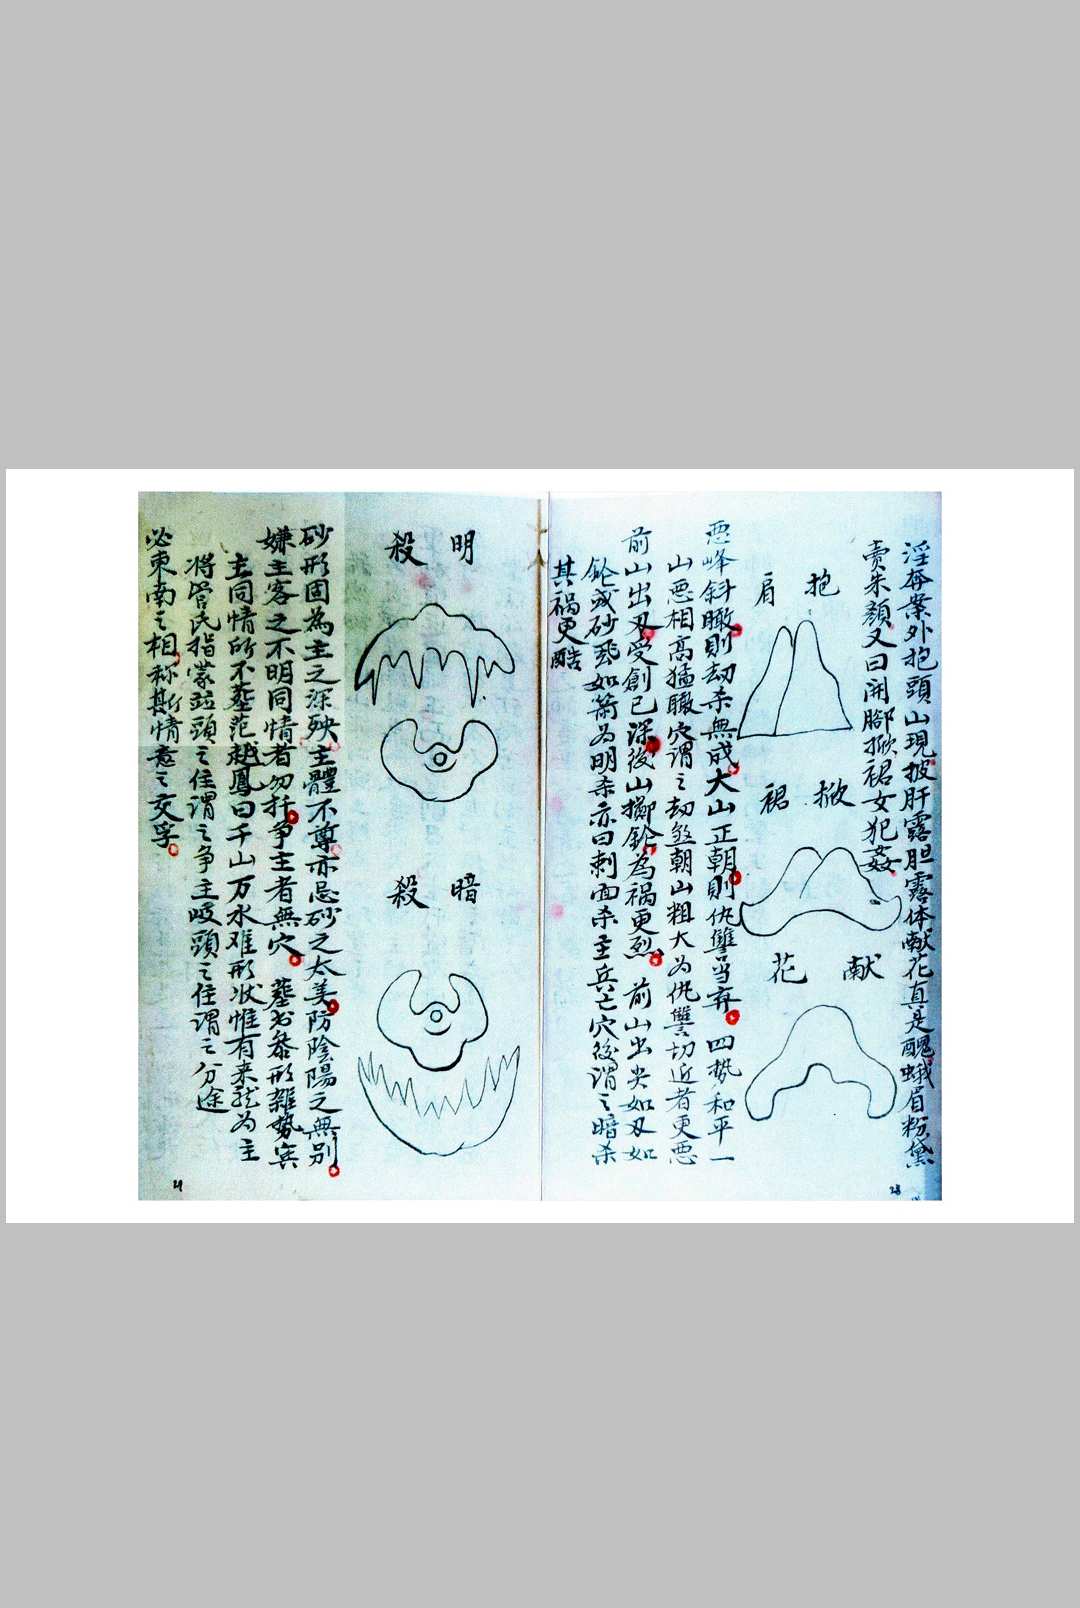 淫奔案外抱頭山現披肝露胆露体献花真是醜蛾眉粉黛
賣朱顏又曰開腳掀裙女犯姦
抱肩
掀裙
献花
悪峰斜瞰則劫杀無成大山正朝則仇讐当弃四势和平一
山悪相高猛瞰穴謂之劫煞朝山粗大为仇讐切近者更悪
前山出刃受創已深後山擲鎗為禍更烈 前山出尖如刃如
鎗或砂飛如箭为明杀亦曰刺面杀主兵亡穴後謂之暗杀
其禍更酷
28
明殺
暗殺
砂形固為主之深殃主體不尊亦忌砂之太美防陰陽之無别
嫌主客之不明同情者勿扦争主者無穴 葬书参形雜势宾
主同情所不葬范越鳳曰千山万水难形状惟有来龙为主
将管氏指蒙竝頭之住謂之争主岐頭之住謂之分途
必東南之相称其斯情意之交孚